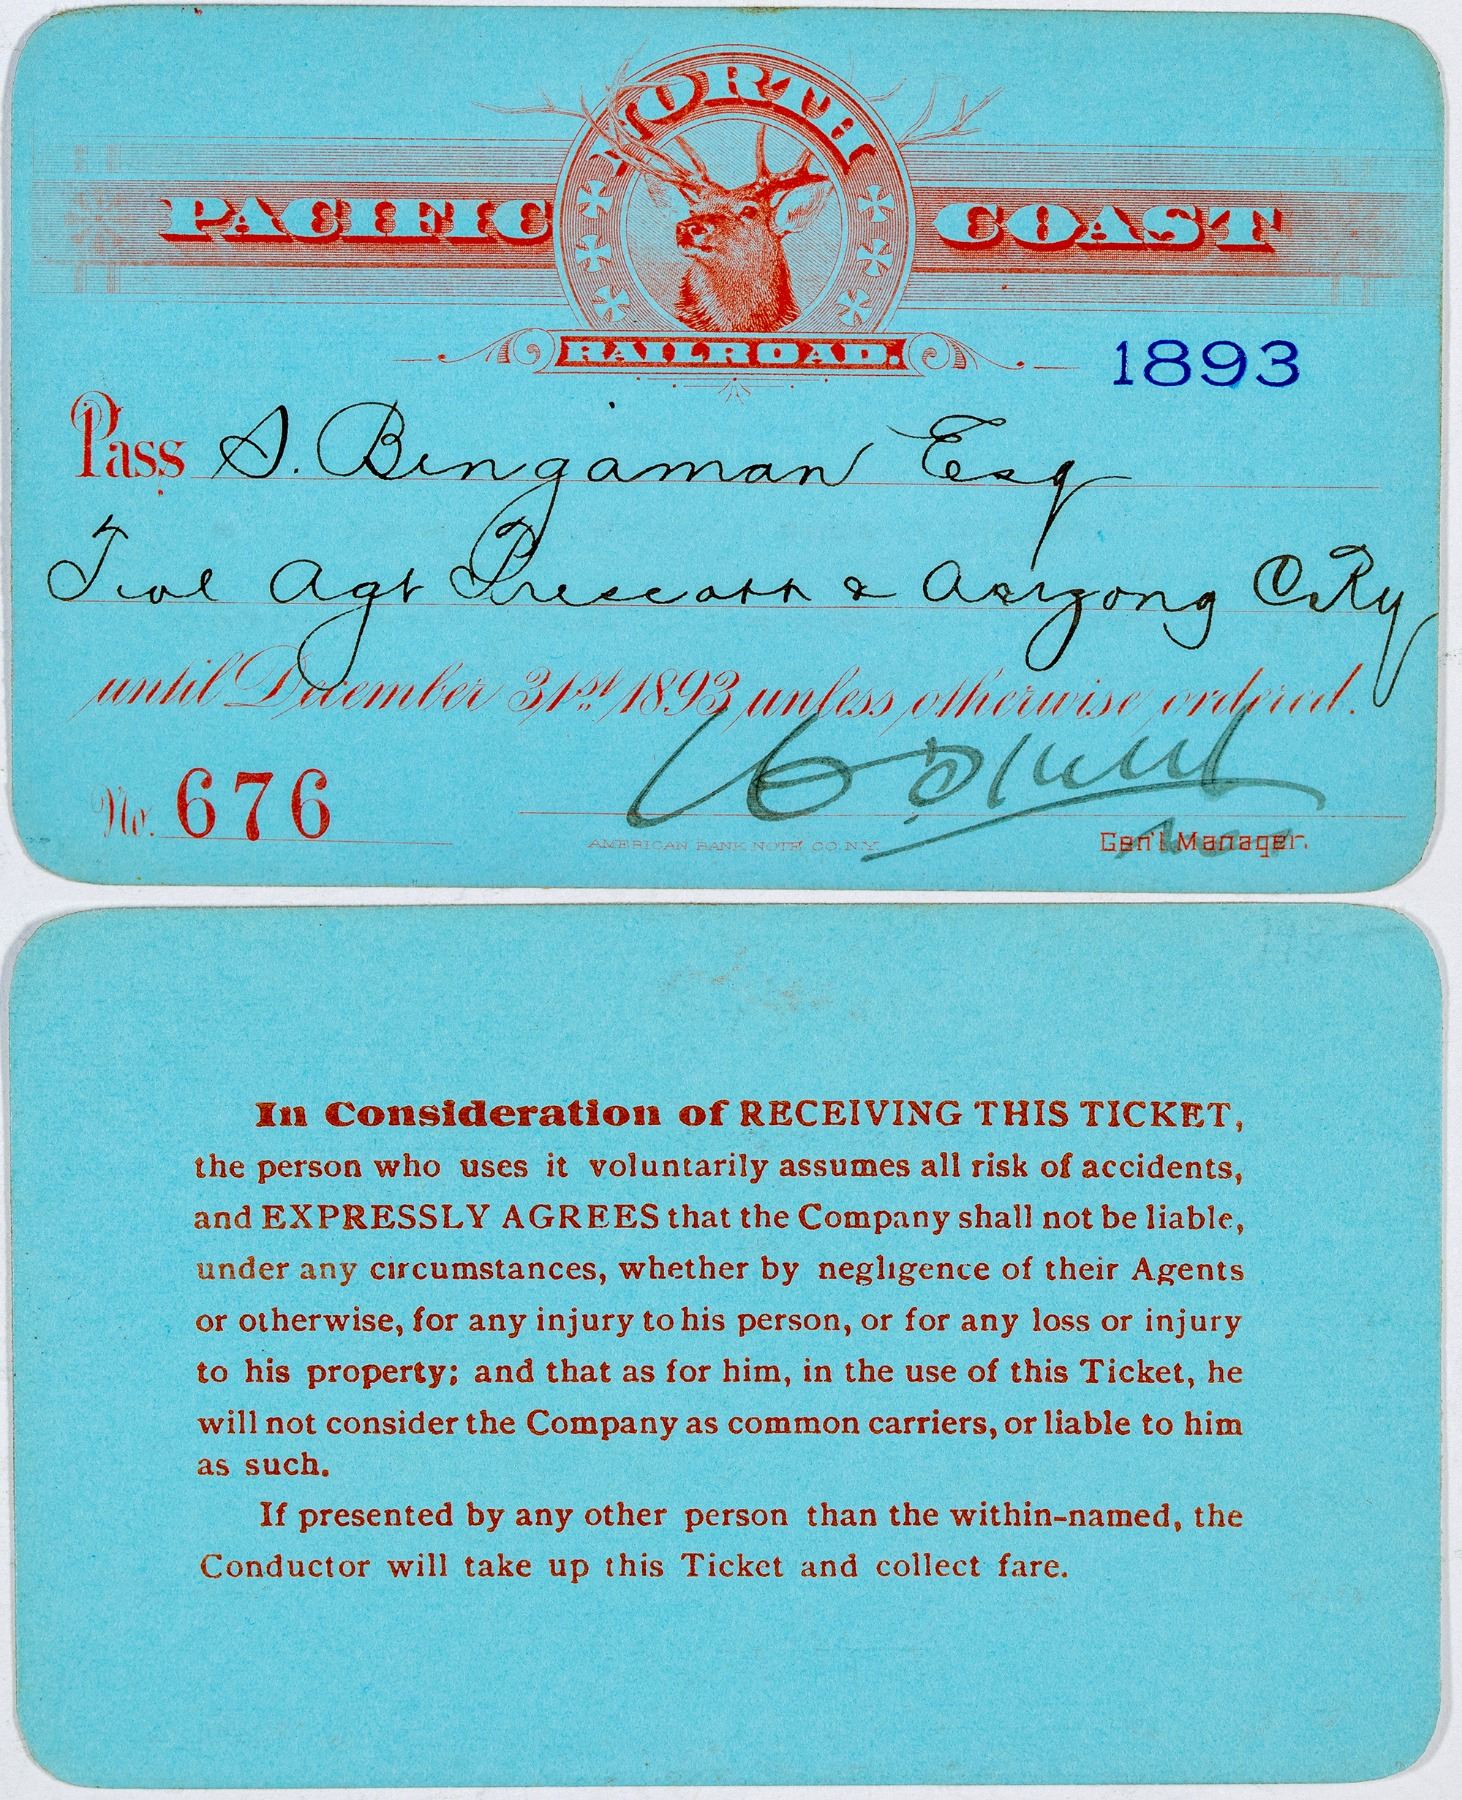 NORTH
PACIFIC COAST
RAILROAD.
1893
Pass S. Bingaman Esq
Trvl Agt Prescott & Arizona C Ry
until December 31st 1893 unless otherwise ordered.
No. 676
AMERICAN BANK NOTE CO. N.Y.
Gen'l Manager.
In Consideration of RECEIVING THIS TICKET,
the person who uses it voluntarily assumes all risk of accidents,
and EXPRESSLY AGREES that the Company shall not be liable,
under any circumstances, whether by negligence of their Agents
or otherwise, for any injury to his person, or for any loss or injury
to his property; and that as for him, in the use of this Ticket, he
will not consider the Company as common carriers, or liable to him
as such.
If presented by any other person than the within-named, the
Conductor will take up this Ticket and collect fare.